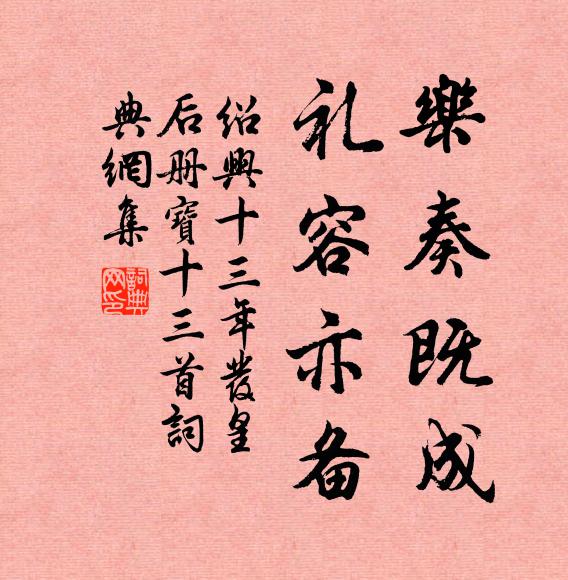 樂奏既成
礼容亦备
绍興十三年發皇
后册寶十三首詞
典網集
詞典网印